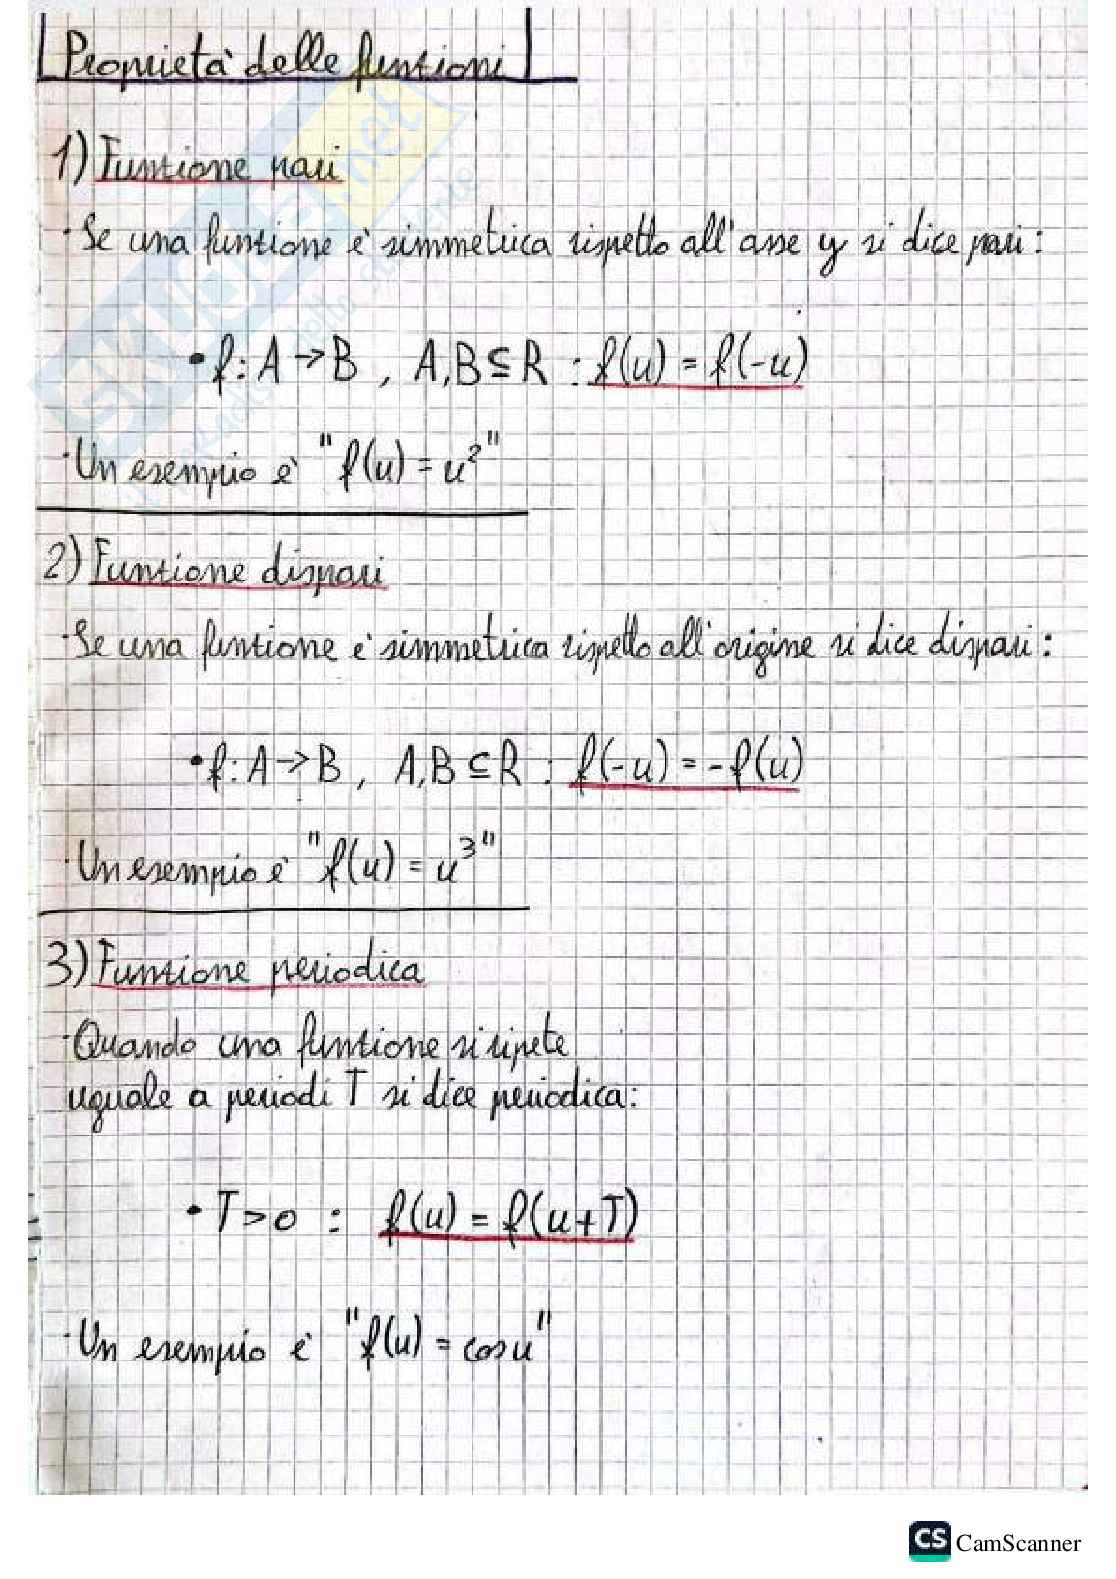 Proprietà delle funzioni
1) Funzione pari
· Se una funzione è simmetrica rispetto all'asse y si dice pari:
• f: A → B , A,B ⊆ R : f(u) = f(-u)
· Un esempio è "f(u) = u²"
2) Funzione dispari
· Se una funzione è simmetrica rispetto all'origine si dice dispari:
• f: A → B , A,B ⊆ R : f(-u) = -f(u)
· Un esempio è "f(u) = u³"
3) Funzione periodica
· Quando una funzione si ripete
uguale a periodi T si dice periodica:
• T>0 : f(u) = f(u+T)
· Un esempio è "f(u) = cos u"
SKUOLA.net
CS CamScanner